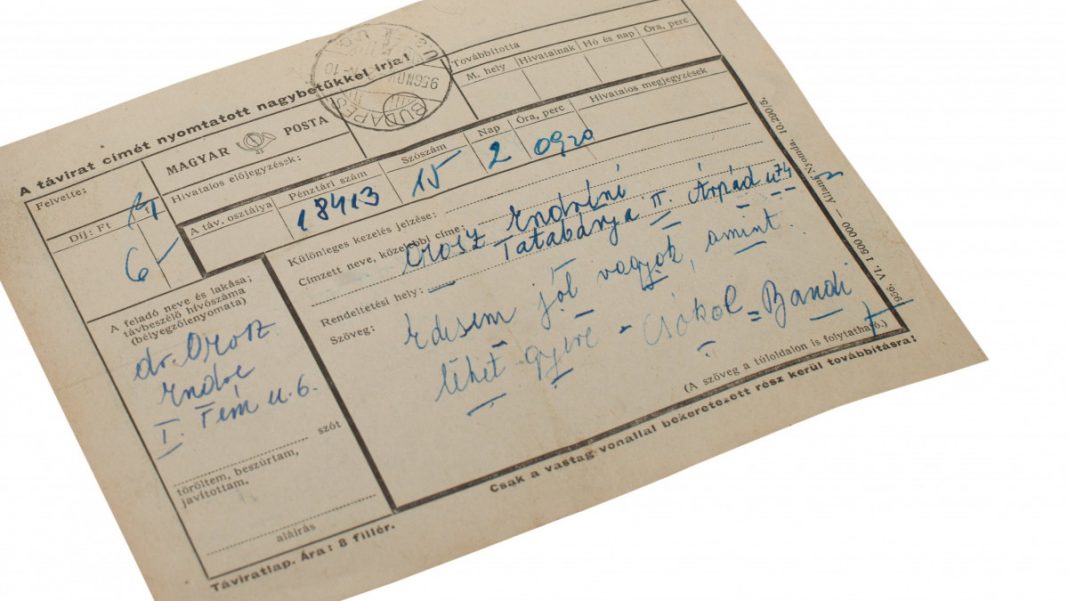 A távirat címét nyomtatott nagybetűkkel írja!
Felvette:
Díj: Ft
6-
MAGYAR POSTA
Hivatalos előjegyzések:
A táv. osztálya
Pénztári szám
Szószám
Nap
Óra, perc
Hivatalos megjegyzések
18413
15
2
0920
Továbbította
M. hely
Hivatalnak
Hó és nap
Óra, perc
BUDAPES
956 NOV
Különleges kezelés jelzése:
Címzett neve, közelebbi címe:
Orosz Endréné
Tatabánya II. Árpád u 74
Rendeltetési hely:
Szöveg:
Édesem jól vagyok, amint
lehet gyere - Csókol = Bandi
(A szöveg a túloldalon is folytatható.)
Csak a vastag vonallal bekeretezett rész kerül továbbításra!
A feladó neve és lakása;
távbeszélő hívószáma
(bélyegzőlenyomata)
dr. Orosz
Endre
I. Fém u. 6.
szót
töröltem, beszúrtam,
javítottam,
aláírás
Táviratlap. Ára: 8 fillér.
956. VI. 1 500 000 — Állami Nyomda. 10.200/5.